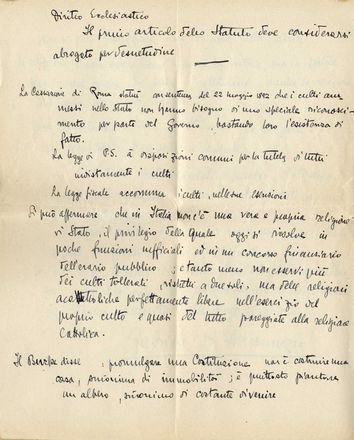 Diritto Ecclesiastico
Il primo articolo dello Statuto deve considerarsi
abrogato per desuetudine
La Cassazione di Roma statuì con sentenza del 22 maggio 1882 che i culti am
messi nello Stato non hanno bisogno di uno speciale riconosci-
mento per parte del Governo, bastando loro l'esistenza di
fatto.
La legge di P.S. à disposizioni comuni per la tutela di tutti
indistintamente i culti
La legge fiscale accomuna i culti, nelle sue esenzioni
Si può affermare che in Italia non c'è una vera e propria religione
di Stato, il privilegio della quale oggi si risolve in
poche funzioni ufficiali ed in un concorso finanziario
dell'erario pubblico; e tanto meno non esservi più
dei culti tollerati, rispetti a questi, ma delle religioni
acattoliche perfettamente libere nell'esercizio del
proprio culto e quasi del tutto pareggiate alla religione
Cattolica.
Il disse, promulgare una Costituzione non è costruire una
casa, sinonimo di immobilità; è piuttosto piantare
un albero, sinonimo di costante divenire